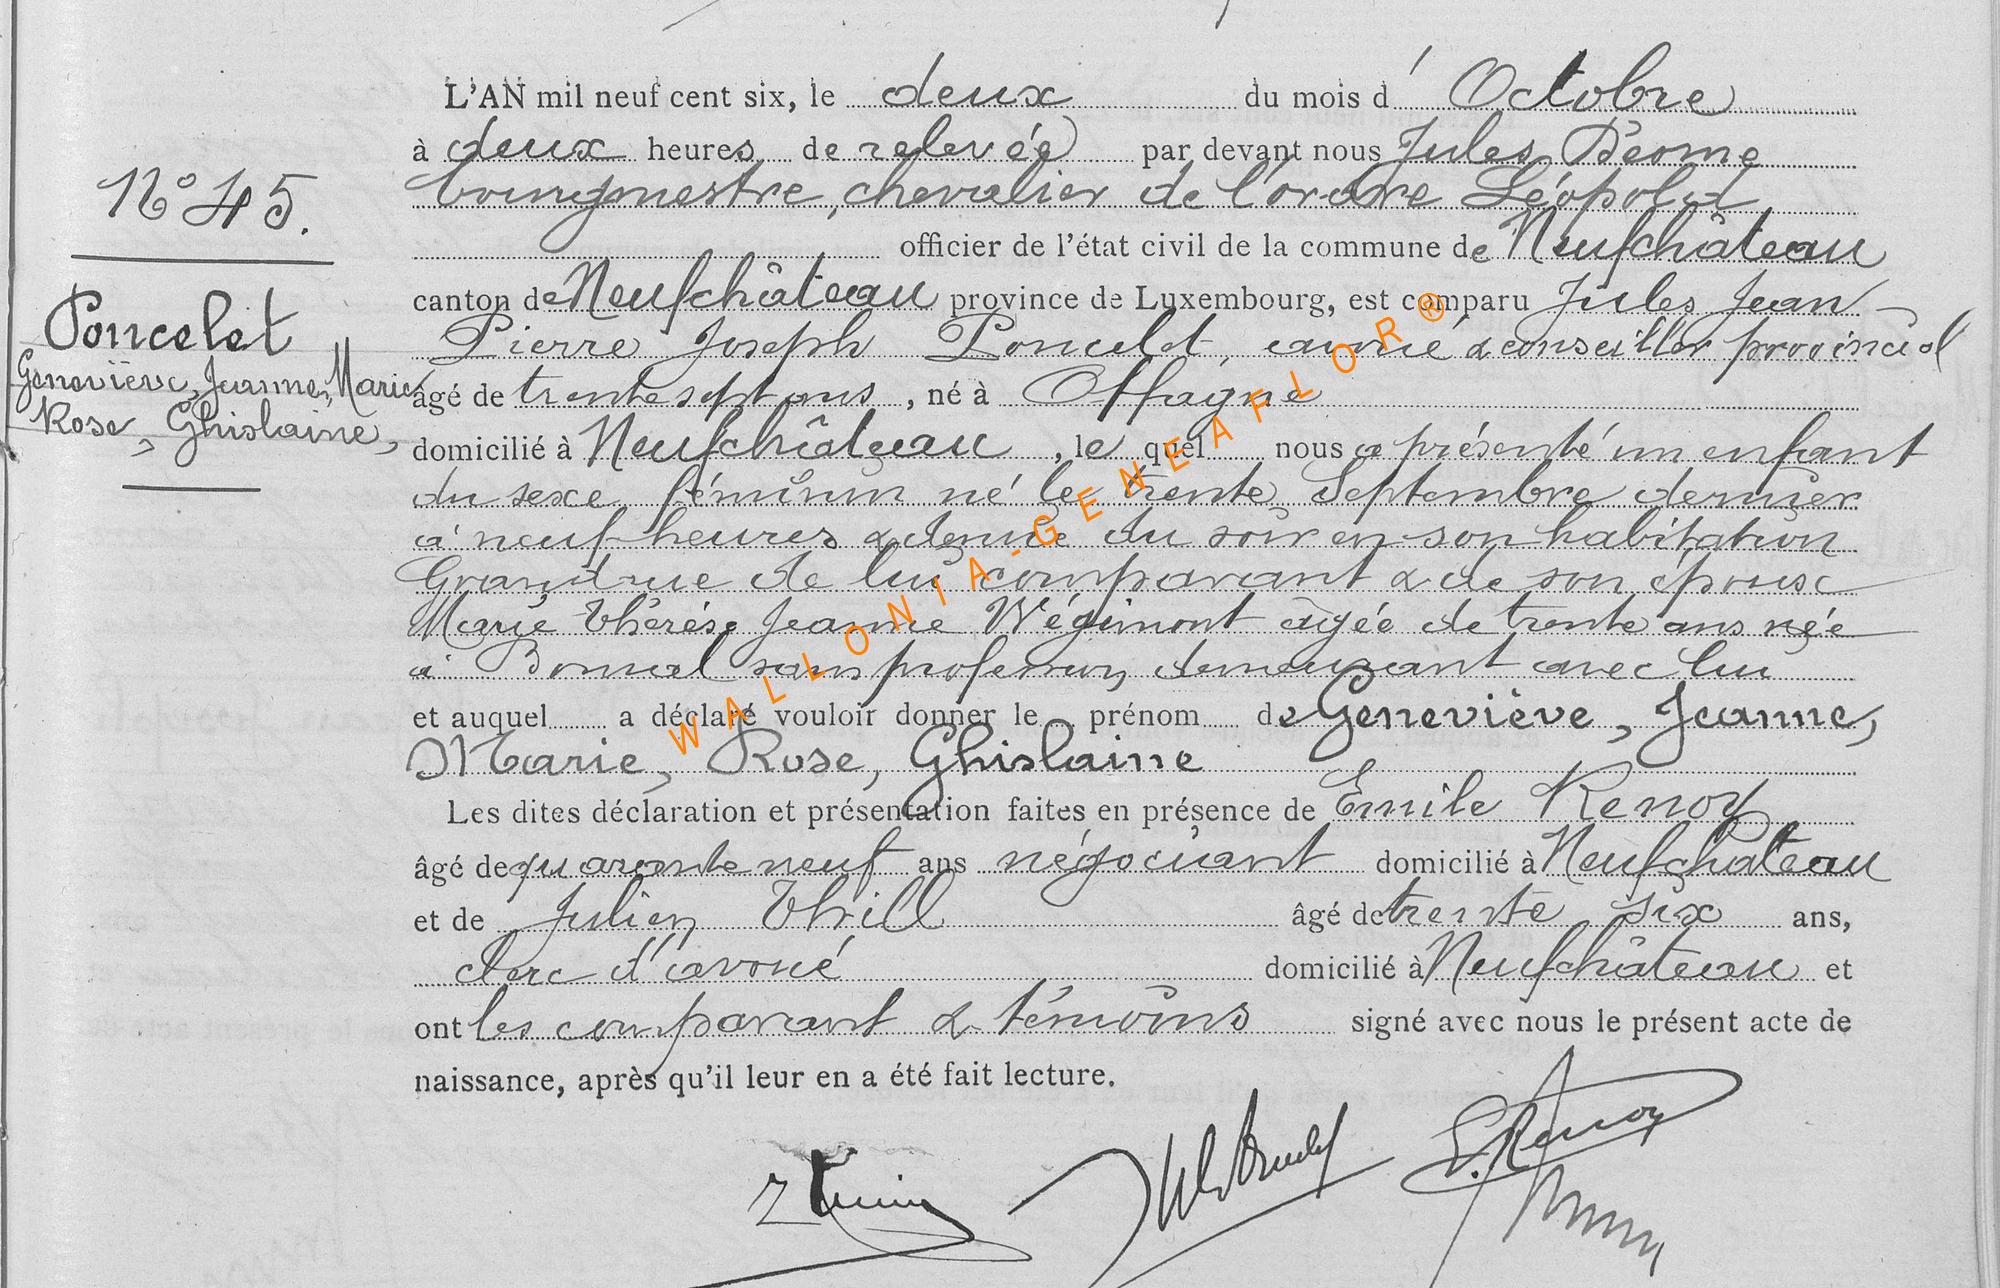 L'AN mil neuf cent six, le deux du mois d' Octobre
à deux heures de relevée par devant nous Jules
N° 45.
bourgmestre, chevalier de l'ordre Léopold
officier de l'état civil de la commune de Neufchâteau
canton de Neufchâteau province de Luxembourg, est comparu Jules Jean
Poncelet
Pierre Joseph Poncelet, avoué & conseiller provincial
Geneviève, Jeanne, Marie,
âgé de trente sept ans, né à Offagne
Rose, Ghislaine,
domicilié à Neufchâteau, le quel nous a présenté un enfant
du sexe féminin né le trente Septembre dernier
à neuf heures & demie du soir en son habitation
Grand'rue de lui comparant & de son épouse
Marie Thérèse Jeanne Wégimont âgée de trente ans née
à Bomal sans profession demeurant avec lui
et auquel a déclaré vouloir donner le prénom de Geneviève, Jeanne,
Marie, Rose, Ghislaine
Les dites déclaration et présentation faites en présence de Emile Renoy
âgé de quarante neuf ans négociant domicilié à Neufchateau
et de Julien Thill âgé de trente six ans,
clerc d'avoué domicilié à Neufchâteau et
ont les comparant & témoins signé avec nous le présent acte de
naissance, après qu'il leur en a été fait lecture.
E. Renoy
WALLONIA-GENEAFLOR®